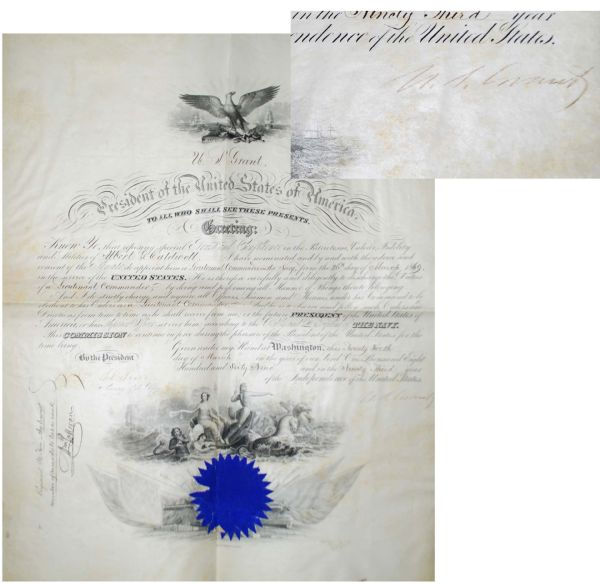 in the Ninety Third year
endence of the United States.
U. S. Grant
U. S. Grant.
President of the United States of America.
TO ALL WHO SHALL SEE THESE PRESENTS,
Greeting:
Know Ye, that reposing special in the Patriotism, Valor, Fidelity
and Abilities of Albert G Caldwell I have nominated and by and with the advice and
consent of the Senate do appoint him a Lieutenant Commander from the of March 1869,
in the service of the UNITED STATES. He is therefore carefully and diligently to discharge the duties
of a Lieutenant Commander by doing and performing all Manner of things thereto belonging.
And I do strictly charge and require all Officers Seamen and Marines under his Command to be
obedient to his Orders as a Lieutenant Commander And he is to observe and follow such Orders and
Directions from time to time as he shall receive from me, or the future PRESIDENT of the United States of
America, or his Superior Officer set over him, according to the of THE NAVY.
This COMMISSION to continue in force during the pleasure of the President of the United States for the
time being.
Given under my Hand at Washington, this
By the President
day of March in the year of our Lord One Thousand Eight
Hundred and Sixty Nine and in the Ninety Third year
of the Independence of the United States.
U. S. Grant